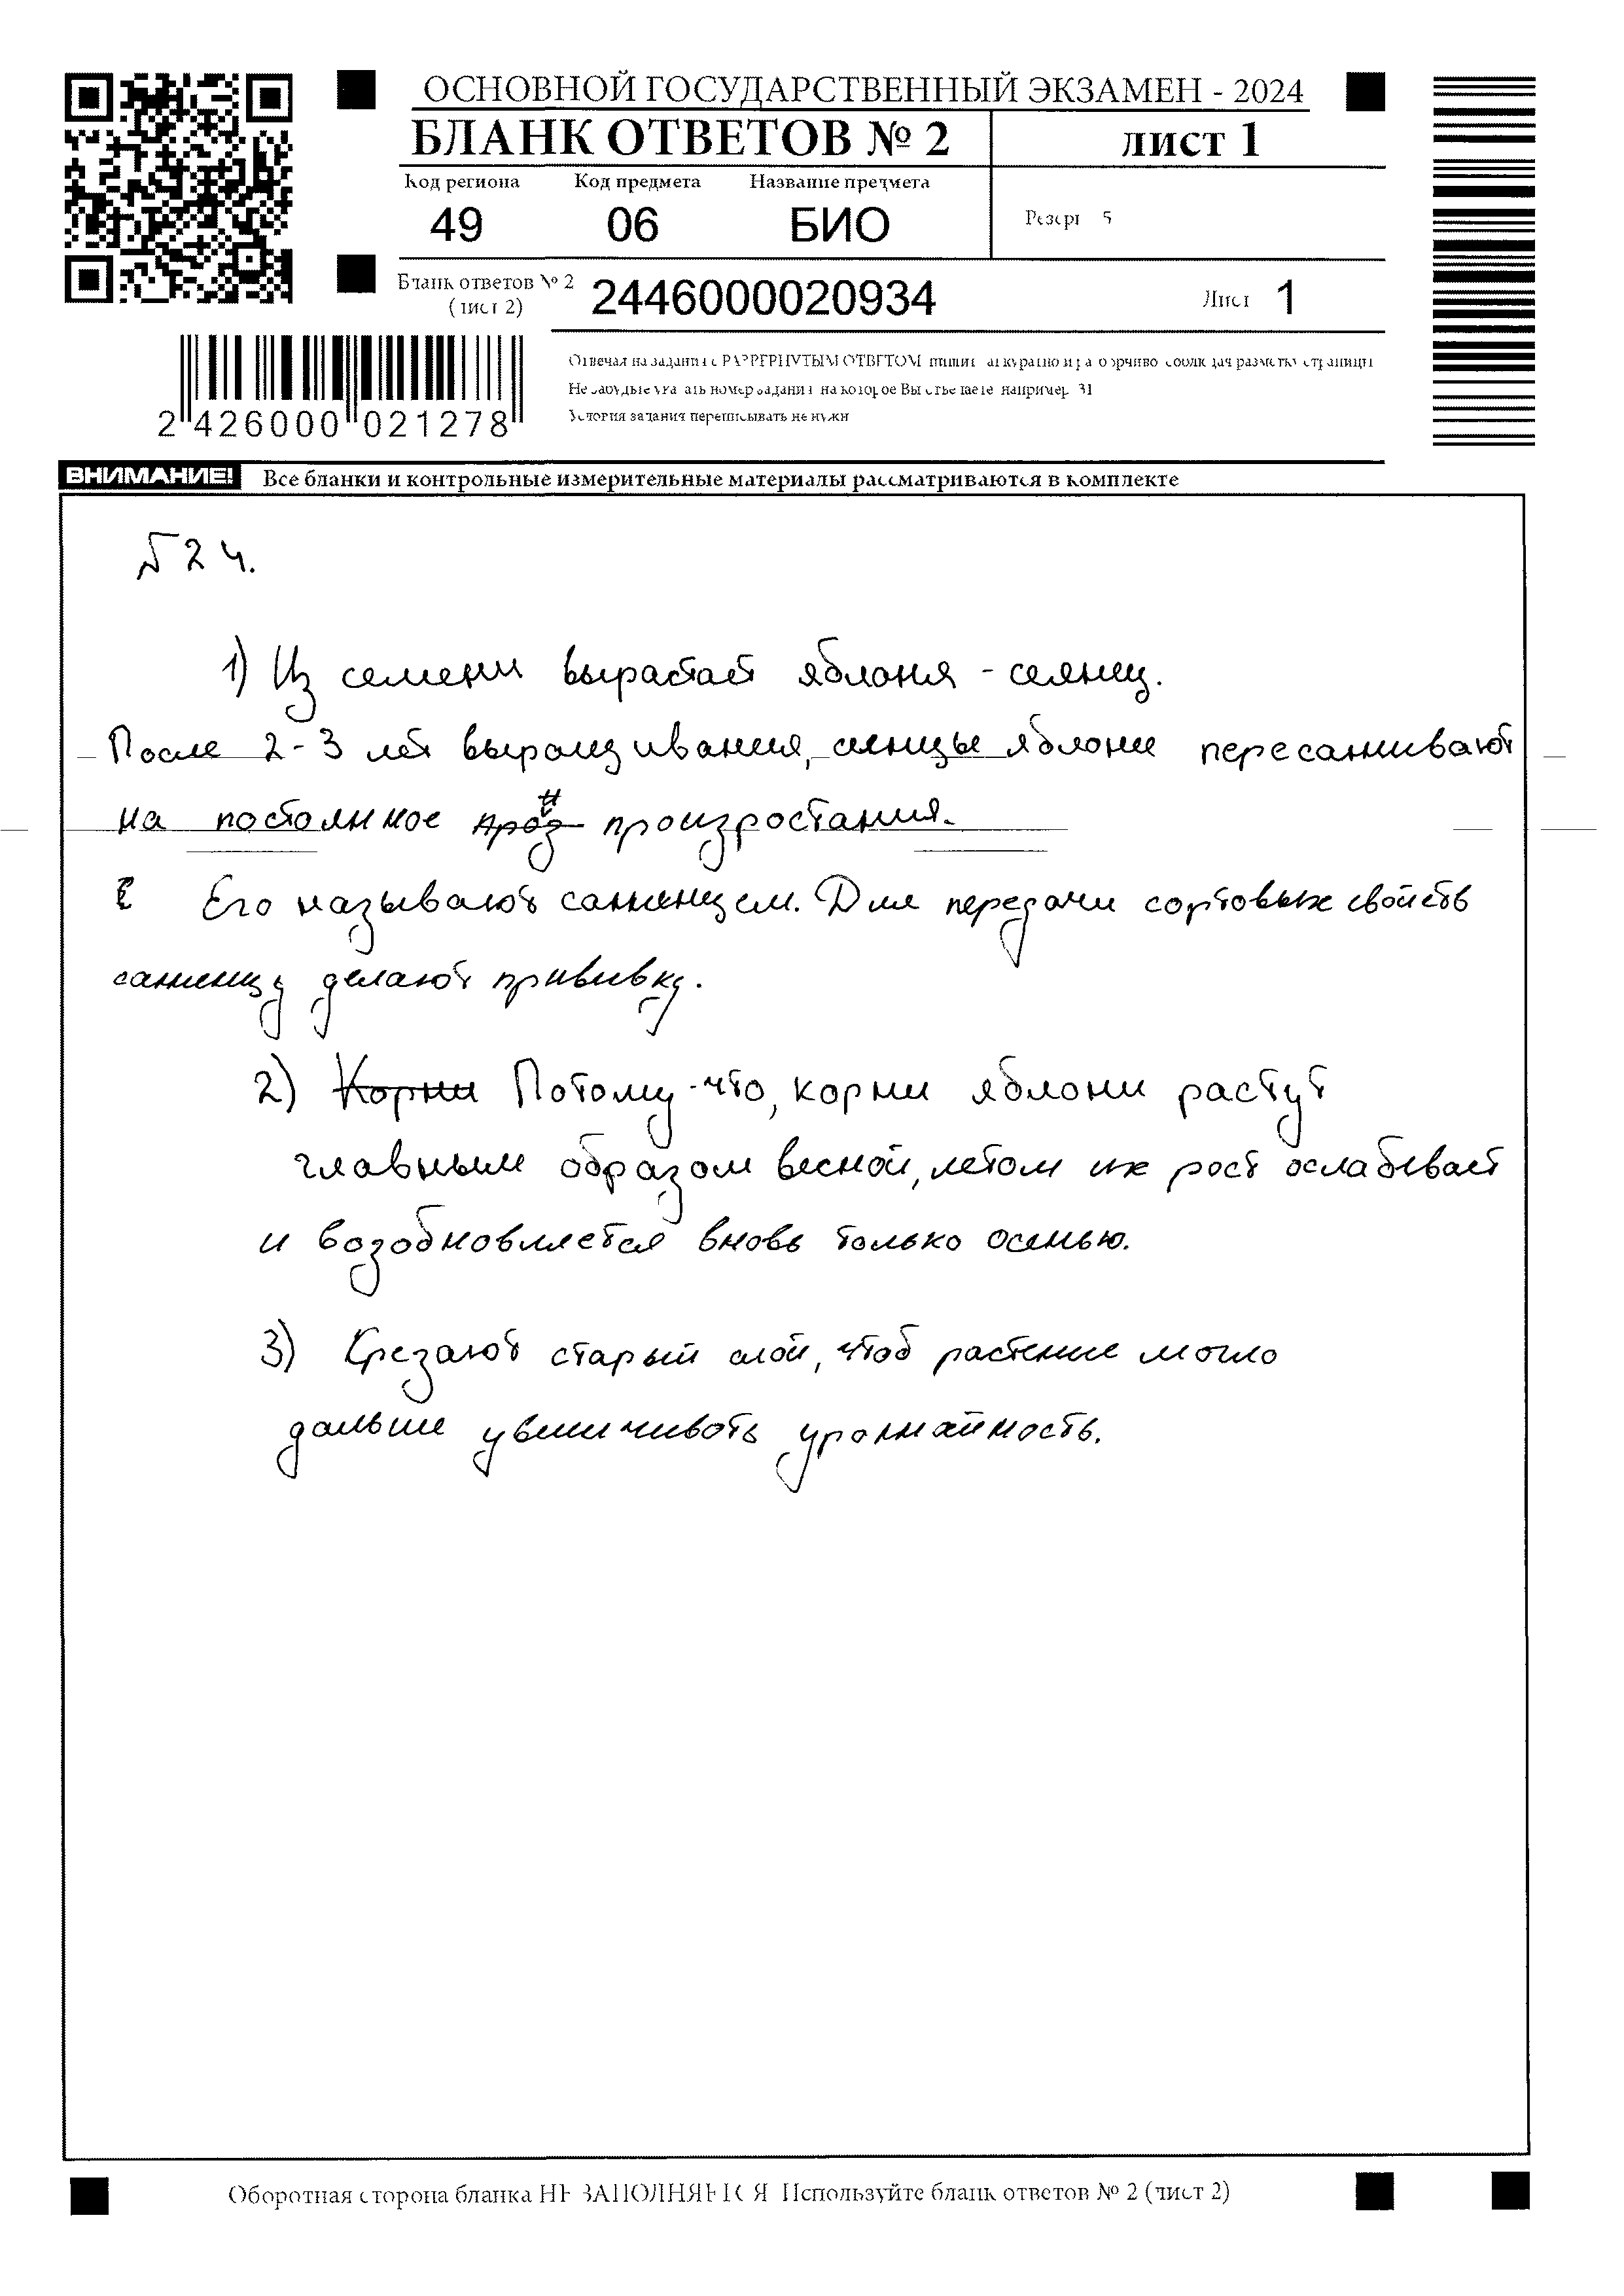 ОСНОВНОЙ ГОСУДАРСТВЕННЫЙ ЭКЗАМЕН - 2024
БЛАНК ОТВЕТОВ № 2
лист 1
Код региона Код предмета Название предмета
49 06 БИО
Резерв - 5
Бланк ответов № 2
(лист 2)
2446000020934
Лист 1
2 426000 021278
Отвечая на задания с РАЗВЕРНУТЫМ ОТВЕТОМ, пишите аккуратно и разборчиво, соблюдая разметку страницы
Не забудьте указать номер задания, на которое Вы отвечаете, например, 31
Условия задания переписывать не нужно
ВНИМАНИЕ! Все бланки и контрольные измерительные материалы рассматриваются в комплекте
№ 24.
1) Из семени вырастает яблоня - сеянец.
После 2-3 лет выращивания, сеянцы яблони пересаживают
на постоянное произростания.
Его называют саженцем. Для передачи сортовых свойств
саженцу делают прививку.
2) Корни Потому-что, корни яблони растут
главным образом весной, летом их рост ослабевает
и возобновляется вновь только осенью.
3) Срезают старый слой, чтоб растение могло
дальше увеличивать урожайность.
Оборотная сторона бланка НЕ ЗАПОЛНЯЕТСЯ. Используйте бланк ответов № 2 (лист 2)